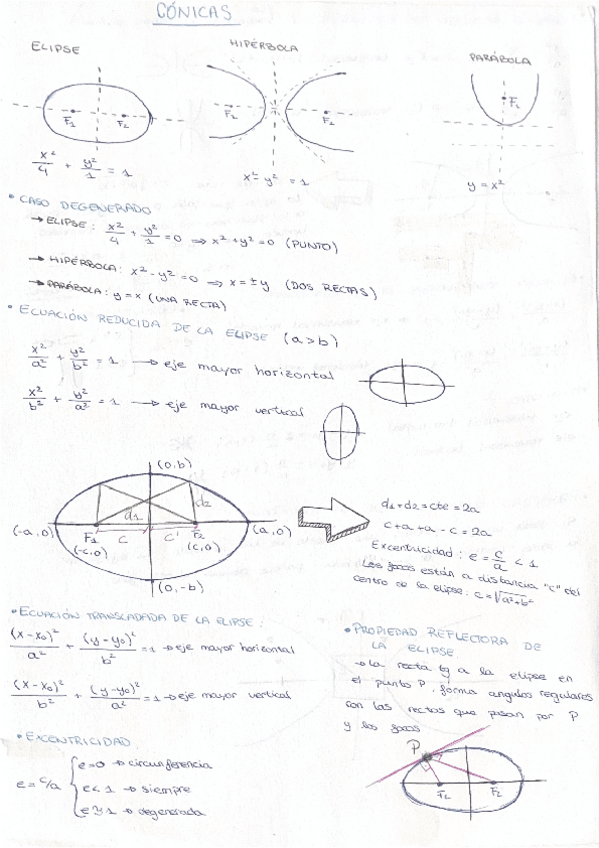 CÓNICAS
ELIPSE
HIPÉRBOLA
PARÁBOLA
F₁ F₂
F₁ F₂
F₁
x²/4 + y²/1 = 1
x² - y² = 1
y = x²
• CASO DEGENERADO
→ ELIPSE: x²/4 + y²/1 = 0 ⇒ x² + y² = 0 (PUNTO)
→ HIPÉRBOLA: x² - y² = 0 ⇒ x = ± y (DOS RECTAS)
→ PARÁBOLA: y = x (UNA RECTA)
• ECUACIÓN REDUCIDA DE LA ELIPSE (a > b)
x²/a² + y²/b² = 1 → eje mayor horizontal
x²/b² + y²/a² = 1 → eje mayor vertical
(0,b)
d1 d2
(-a,0) F1 C C F2 (a,0)
(-c,0) (c,0)
(0,-b)
d1 + d2 = cte = 2a
c + a + a - c = 2a
Excentricidad: e = c/a < 1
Los focos están a distancia "c" del
centro de la elipse: c = √a²+b²
• ECUACIÓN TRANSLADADA DE LA ELIPSE:
(x-x₀)²/a² + (y-y₀)²/b² = 1 → eje mayor horizontal
(x-x₀)²/b² + (y-y₀)²/a² = 1 → eje mayor vertical
• EXCENTRICIDAD
e = c/a { e=0 → circunferencia
e<1 → siempre
e≥1 → degenerada
• PROPIEDAD REFLECTORA DE
LA ELIPSE
→ la recta tg a la elipse en
el punto P, forma angulos regulares
con las rectas que pasan por P
y los focos
P
F₂ F₂